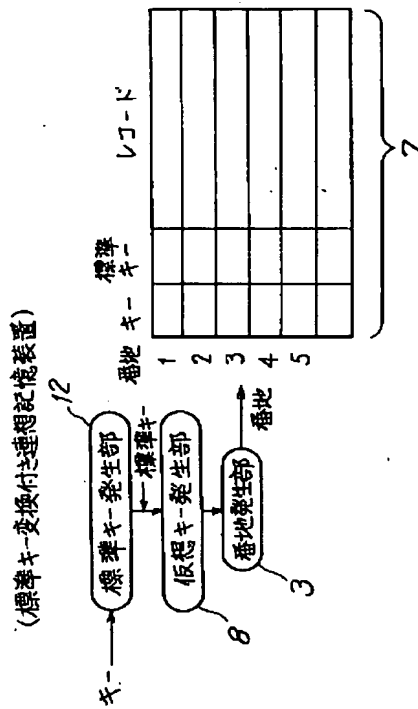 (標準キー変換付き連想記憶装置)
キー
標準キー発生部
12
標準キー
仮想キー発生部
8
番地発生部
3
番地
番地
キー
標準
キー
レコード
1
2
3
4
5
7